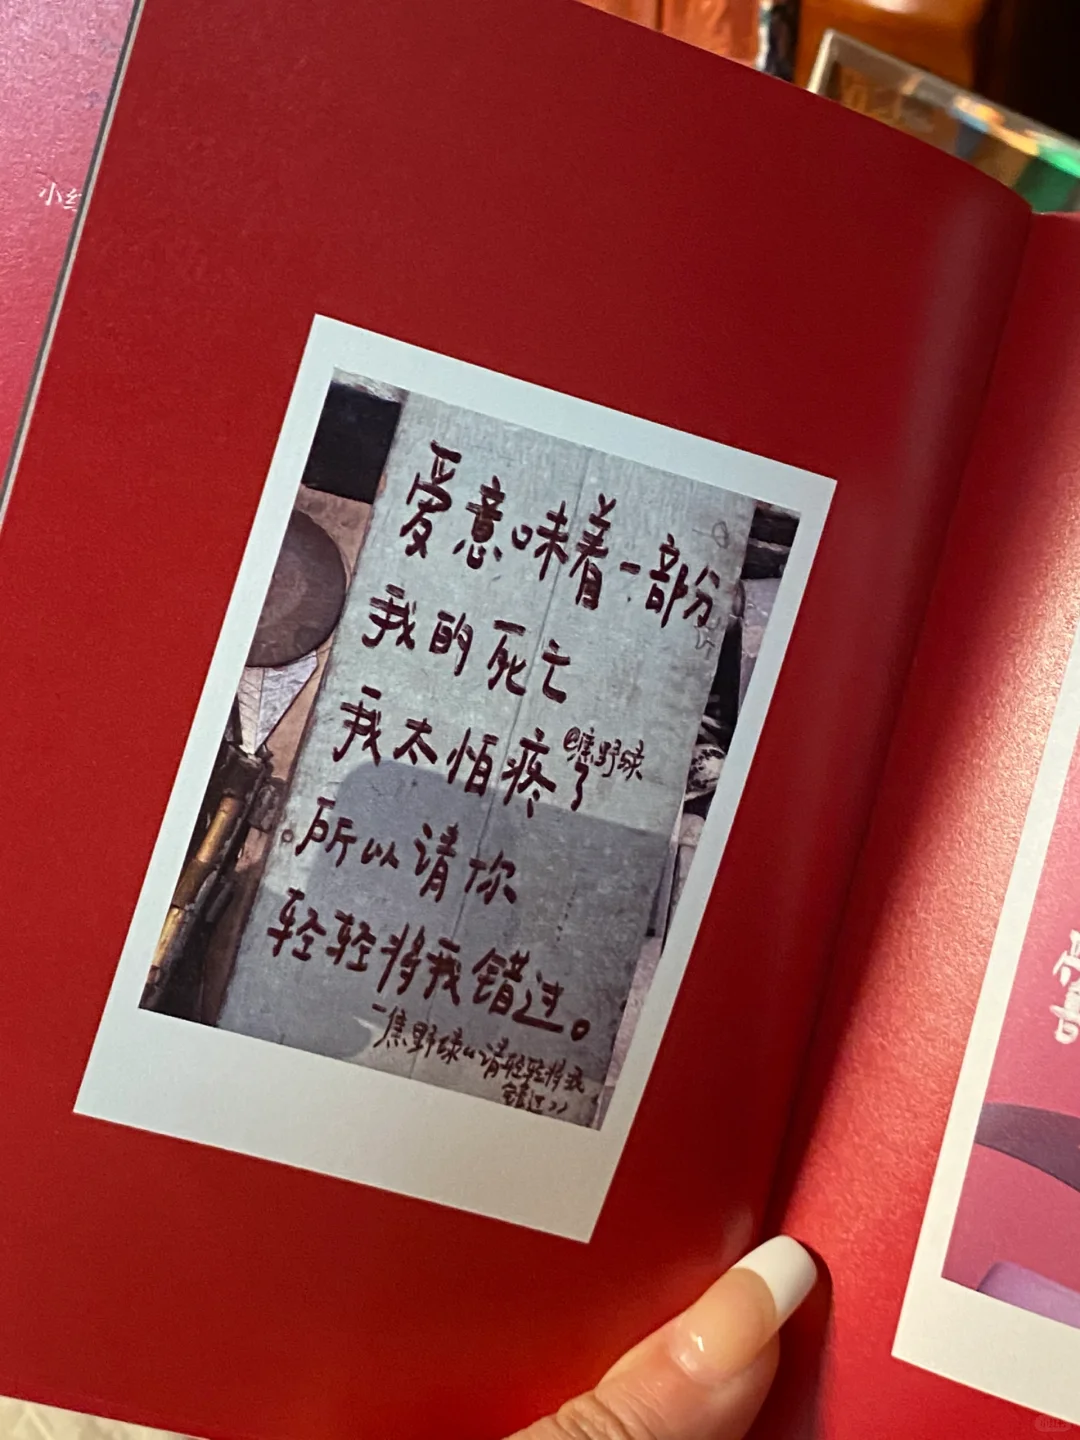 小红
爱意味着一部份
我的死亡
我太怕疼了
@焦野绿
所以请你
轻轻将我错过。
—焦野绿《请轻轻将我
错过》